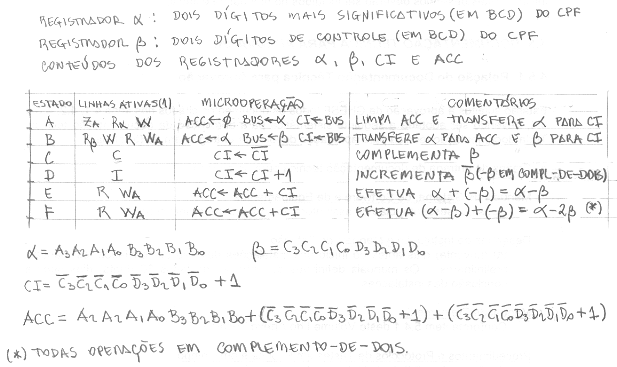 REGISTRADOR α : DOIS DÍGITOS MAIS SIGNIFICATIVOS (EM BCD) DO CPF
REGISTRADOR β : DOIS DÍGITOS DE CONTROLE (EM BCD) DO CPF
CONTEÚDOS DOS REGISTRADORES α, β, CI E ACC :
ESTADO LINHAS ATIVAS(1) MICROOPERAÇÃO COMENTÁRIOS
A ZA Rα W ACC←∅ BUS←α CI←BUS LIMPA ACC E TRANSFERE α PARA CI
B Rβ W R WA ACC←α BUS←β CI←BUS TRANSFERE α PARA ACC E β PARA CI
C C CI←C̅I̅ COMPLEMENTA β
D I CI←CI+1 INCREMENTA β̅ (-β EM COMPL-DE-DOIS)
E R WA ACC←ACC + CI EFETUA α+(-β) = α-β
F R WA ACC←ACC+CI EFETUA (α-β)+(-β) = α-2β (*)
α = A3A2A1A0 B3B2B1B0 β = C3C2C1C0 D3D2D1D0
CI = C̅3C̅2C̅1C̅0 D̅3D̅2D̅1D̅0 + 1
ACC = A2A2A1A0 B3B2B1B0 + (C̅3C̅2C̅1C̅0D̅3D̅2D̅1D̅0+1) + (C̅3C̅2C̅1C̅0D̅3D̅2D̅1D̅0+1)
(*) TODAS OPERAÇÕES EM COMPLEMENTO-DE-DOIS.